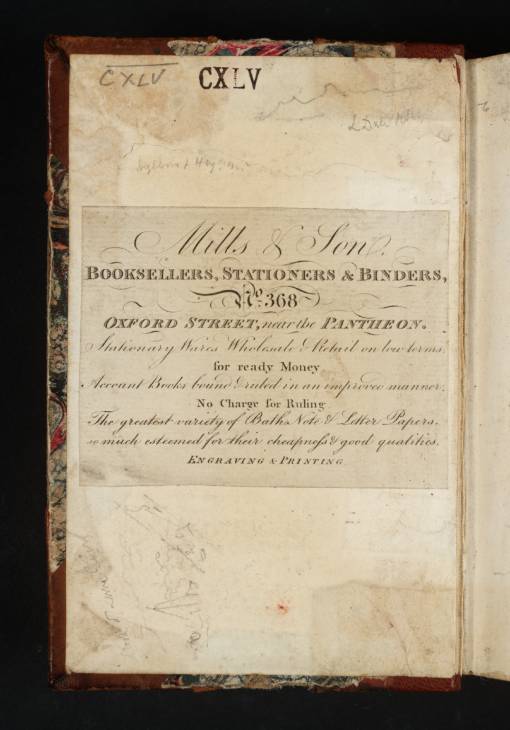 CXLV
CXLV
Mills & Son.
BOOKSELLERS, STATIONERS & BINDERS,
No. 368
OXFORD STREET, near the PANTHEON.
Stationary Wares Wholesale & Retail on low terms,
for ready Money
Account Books bound & ruled in an improved manner.
No Charge for Ruling
The greatest variety of Bath Note & Letter Papers.
so much esteemed for their cheapneſs & good qualities.
ENGRAVING & PRINTING